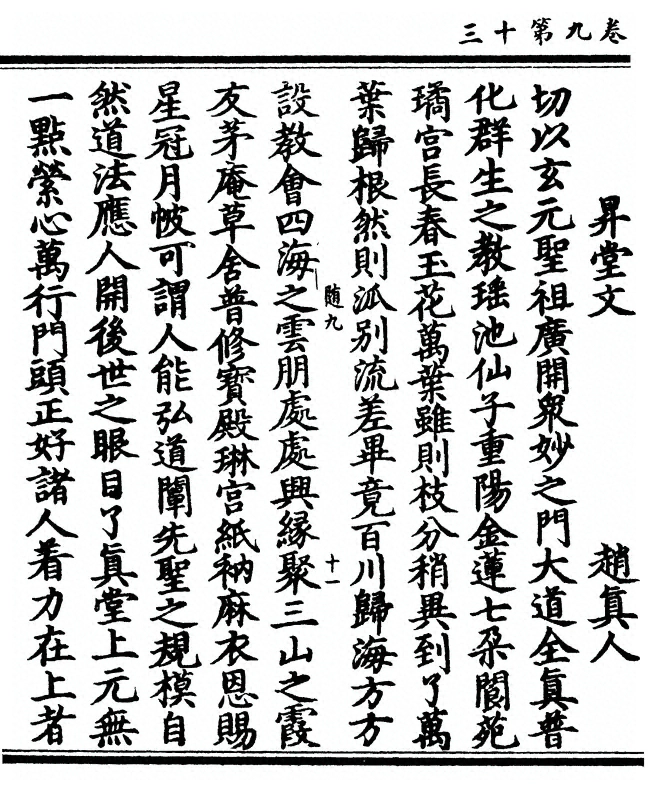 卷九第十三
昇堂文 趙眞人
切以玄元聖祖廣開衆妙之門大道全眞普
化群生之教瑶池仙子重陽金蓮七朶閬苑
璚宫長春玉花萬葉雖則枝分稍異到了萬
葉歸根然則泒别流差畢竟百川歸海方方
随九 十一
設教會四海之雲朋處處興緣聚三山之霞
友茅庵草舍普修寳殿琳宫紙衲麻衣恩賜
星冠月帔可謂人能弘道闡先聖之規模自
然道法應人開後世之眼目了眞堂上元無
一點縈心萬行門頭正好諸人着力在上者